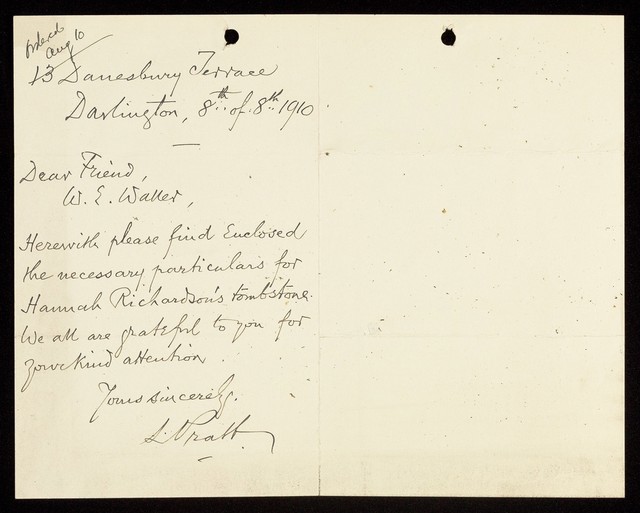 Ordered
Aug 10
13 Danesbury Terrace
Darlington, 8th of 8th 1910
Dear Friend,
W. E. Walker,
Herewith please find Enclosed
the necessary particulars for
Hannah Richardson's tombstone.
We all are grateful to you for
your kind attention.
Yours sincerely.
S. Pratt.